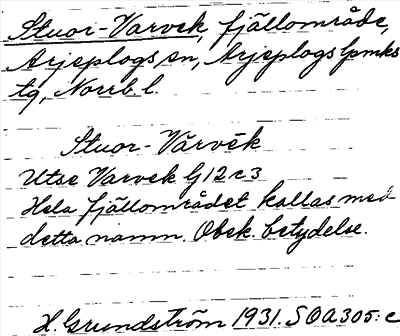 Stuor-Varvek, fjällområde,
Arjeplogs sn, Arjeplogs lpmks
tg, Norrb. l.
Stuor-Várvēk
Utse Varvek G12c3
Hela fjällområdet kallas med
detta namn. Obek. betydelse.
H. Grundström 1931. SOA 305: c